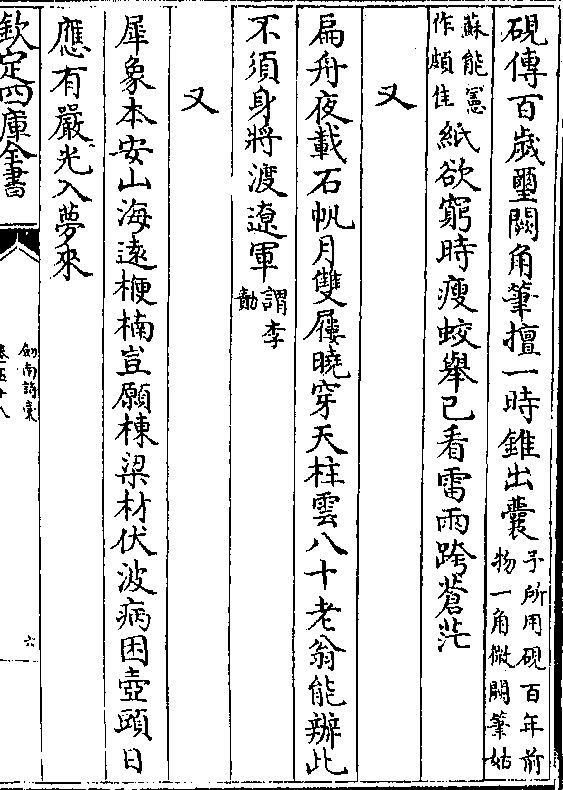 硯傳百歲璽闕角筆擅一時錐出囊予所用硯百年前物一角微闕筆姑
蘇能憲作頗佳紙欲窮時瘦蛟舉已看雷雨跨蒼茫
又
扁舟夜載石帆月雙屨曉穿天柱雲八十老翁能辦此
不須身將渡遼軍謂李勣
又
犀象本安山海遠楩楠豈願棟梁材伏波病困壺頭日
應有嚴光入夢來
欽定四庫全書
劒南詩藁
卷五十八
六